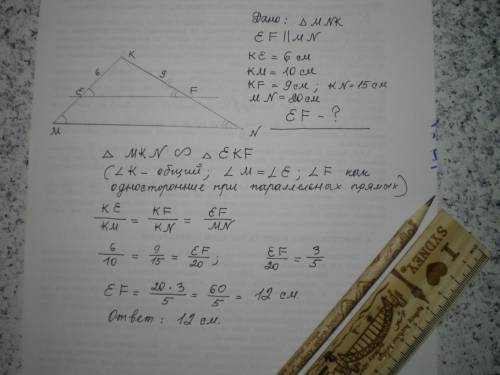 Дано: △ MNK
EF || MN
KE = 6 см
KM = 10 см
KF = 9 см; KN = 15 см
MN = 20 см
EF - ?
K
6
9
E
F
M
N
△ MKN ∽ △ EKF
(∠K - общий; ∠M = ∠E; ∠F как
односторонние при параллельных прямых)
KE/KM = KF/KN = EF/MN
6/10 = 9/15 = EF/20; EF/20 = 3/5
EF = 20·3/5 = 60/5 = 12 см
Ответ: 12 см.
I
SYDNEY.